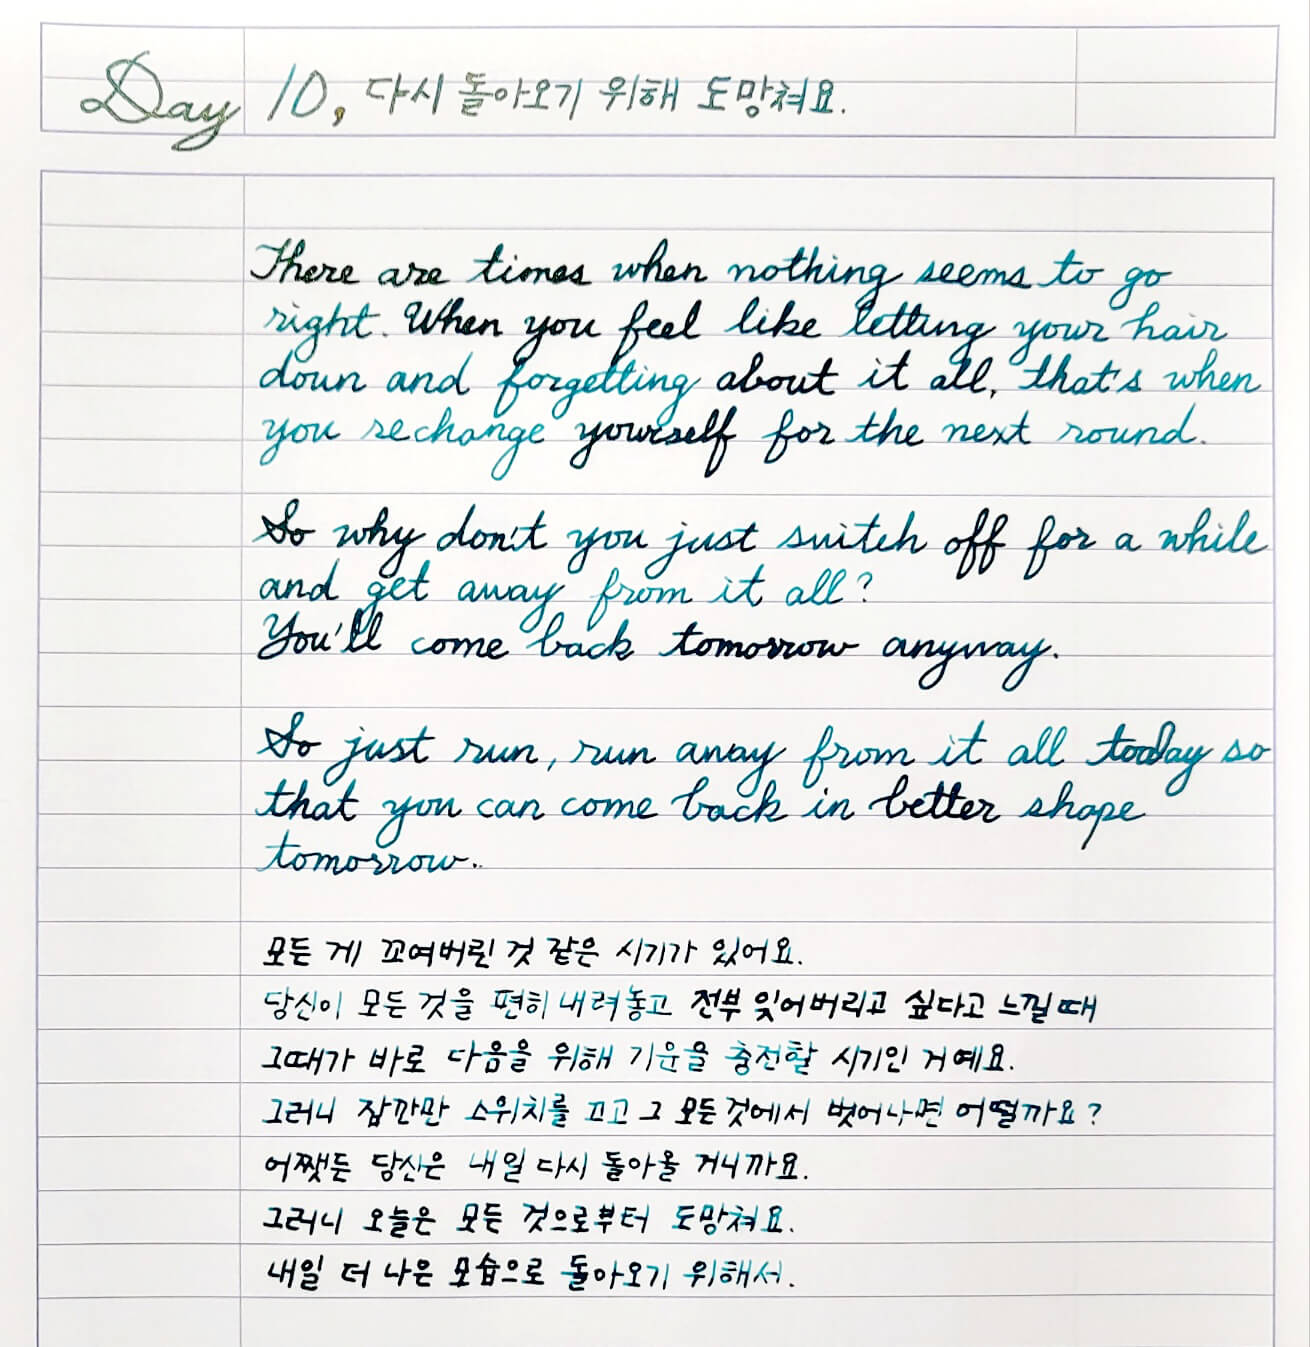 Day 10, 다시 돌아오기 위해 도망쳐요.
There are times when nothing seems to go
right. When you feel like letting your hair
down and forgetting about it all, that's when
you rechange yourself for the next round.
So why don't you just switch off for a while
and get away from it all?
You'll come back tomorrow anyway.
So just run, run away from it all today so
that you can come back in better shape
tomorrow..
모든 게 꼬여버린 것 같은 시기가 있어요.
당신이 모든 것을 편히 내려놓고 전부 잊어버리고 싶다고 느낄때
그때가 바로 다음을 위해 기운을 충전할 시기인 거예요.
그러니 잠깐만 스위치를 끄고 그 모든 것에서 벗어나면 어떨까요?
어쨋든 당신은 내일 다시 돌아올 거니까요.
그러니 오늘은 모든 것으로부터 도망쳐요.
내일 더 나은 모습으로 돌아오기 위해서.